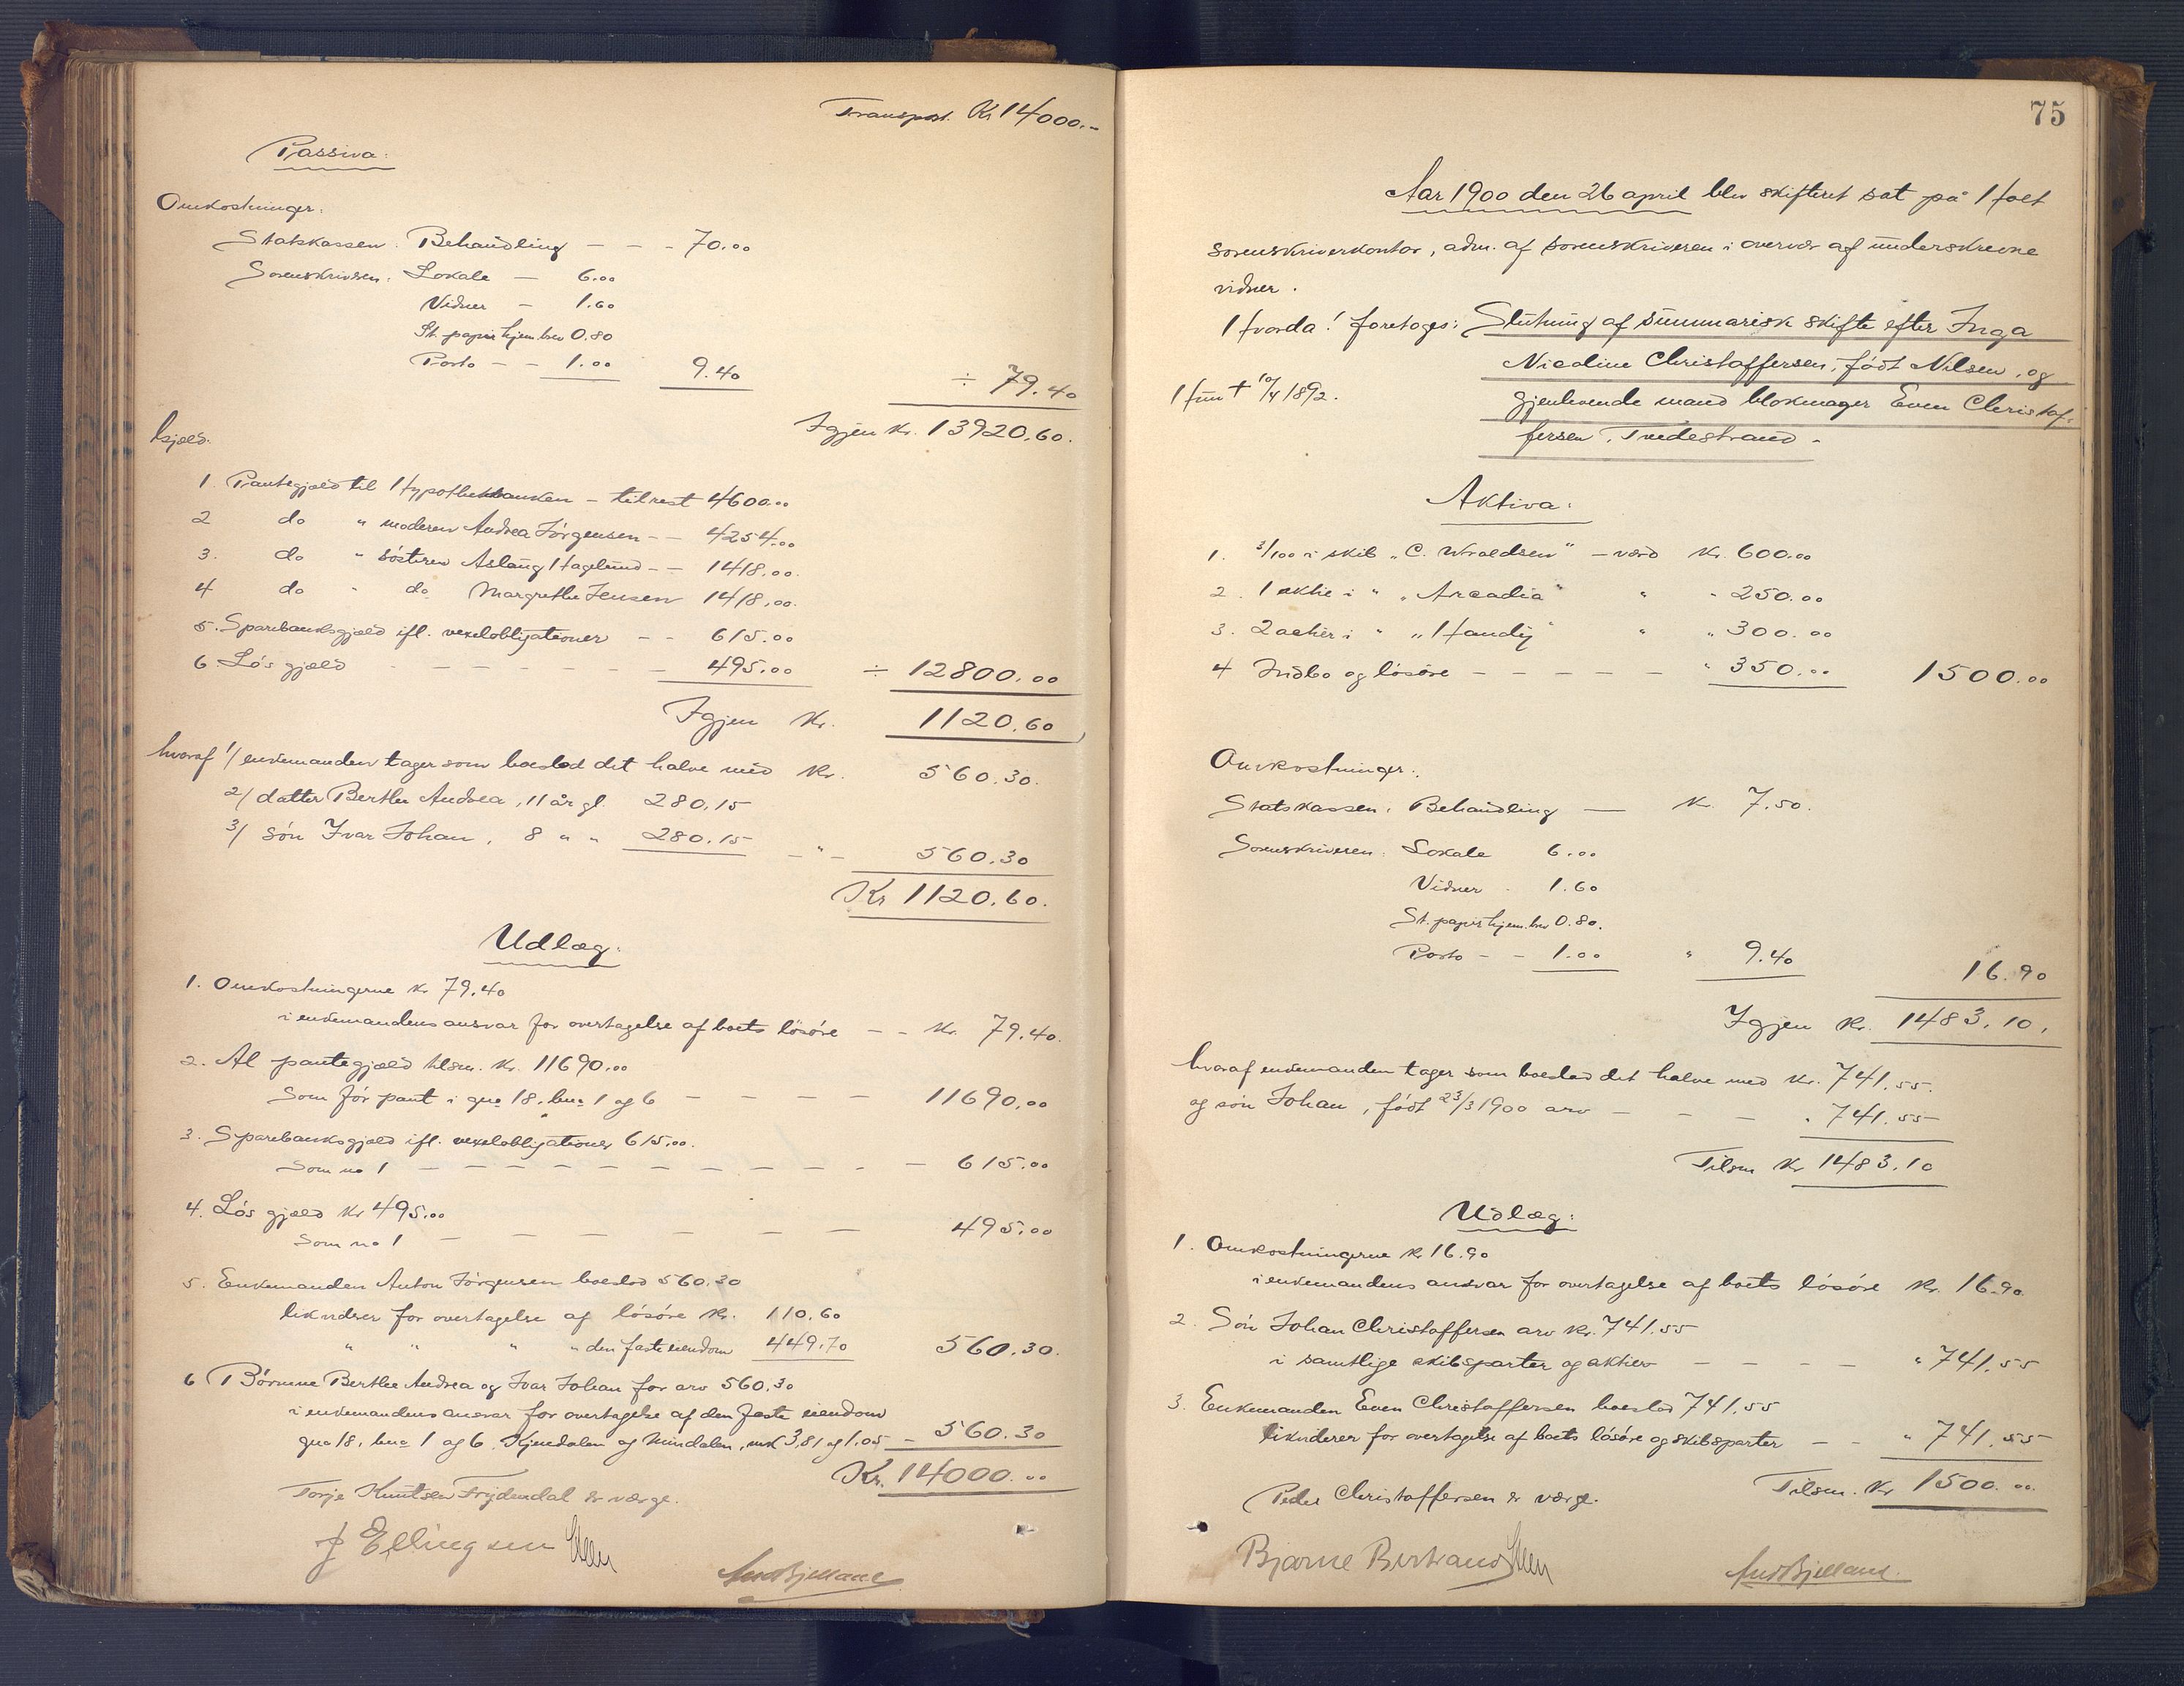 Transport. Kr 14000.-
Passiva:
Omkostninger:
Statskassen: Behandling - - - 70.00
Sorenskriveren: Lokale - 6.00
Vidner - 1.60
St. papir hjem.brev 0.80
Porto - - 1.00 9.40 ÷ 79.40
Igjen Kr. 13920.60.
Gjæld:
1 Pantegjæld til Hypothekbanken - til rest 4600.00
2 do " moderen Andrea Jörgensen - - 4254.00
3. do " söstren Aslaug Hagelund - - 1418.00.
4 do " do Margrethe Jensen 1418.00.
5. Sparebanksgjæld ifl. vexelobligationer - - 615.00
6. Lös gjæld - - - - - - - 495.00 ÷ 12800.00
Igjen Kr. 1120.60
hvoraf 1/ enkemanden tager som boeslod det halve med Kr. 560.30.
2/ datter Berthe Andrea, 11 år gl. 280.15
3/ sön Ivar Johan, 8 " " 280.15 - " - 560.30
Kr 1120.60.
Udlæg:
1. Omkostningerne Kr 79.40
i enkemandens ansvar for overtagelse af boets lösöre - - Kr. 79.40.
2. Al pantegjæld tilsm. Kr. 11690.00
Som för pant i gno 18, bno 1 og 6 - - - - 11690.00
3. Sparebanksgjæld ifl. vexelobligationer 615.00.
Som no 1 - - - - - - - - - - 615.00
4. Lös gjæld Kr 495.00
Som no 1 - - - - - - 495.00
5. Enkemanden Anton Jörgensen boeslod 560.30
likviderer for overtagelse af lösöre Kr. 110.60
" " " " den faste eiendom 449.70 560.30.
6 Börnene Berthe Andrea og Ivar Johan for arv 560.30
i enkemandens ansvar for overtagelse af den faste eiendom
gno 18, bno 1 og 6, og, mk 3,81 og 1.05 - 560.30
Kr. 14000.00
Torje Knutsen Frydendal er værge.
J Ellingsen
And Bjelland
75
Aar 1900 den 26 april blev skifteret sat på Holt
sorenskriverkontor, adm. af sorenskriveren i overvær af underskrevne
vidner.
Hvorda! foretoges: Slutning af summarisk skifte efter Inga
Nicoline Christoffersen, födt Nilsen, og
Hun † 10/4 1892.
gjenlevende mand blokmager Even Christof-
fersen, Tvedestrand.
Aktiva:
1. 3/100 i skib "C. Waldsen" - værd Kr. 600.00
2. 1 aktie i " "Arcadia" " " 250.00
3. 2 aktier i " "Handy" " " 300.00
4 Indbo og lösöre - - - - - " 350.00 1500.00
Omkostninger:
Statskassen: Behandling - Kr. 7.50.
Sorenskriveren: Lokale 6.00
Vidner - 1.60
St. papir hjem.brev 0.80.
Porto - - 1.00 " 9.40 16.90
Igjen Kr. 1483.10.
hvoraf enkemanden tager som boeslod det halve med Kr. 741.55.
og sön Johan, födt 23/3 1900 arv - - - " 741.55
Tilsm Kr 1483.10
Udlæg:
1. Omkostningerne Kr 16.90
i enkemandens ansvar for overtagelse af boets lösöre Kr. 16.90.
2. Sön Johan Christoffersen arv Kr. 741.55
i samtlige skibsparter og aktier - - - - " 741.55
3. Enkemanden Even Christoffersen boeslod 741.55
likviderer for overtagelse af boets lösöre og skibsparter - - " 741.55
Tilsm. Kr 1500.00.
Peder Christoffersen er værge.
Bjarne Bertrand
And Bjelland.